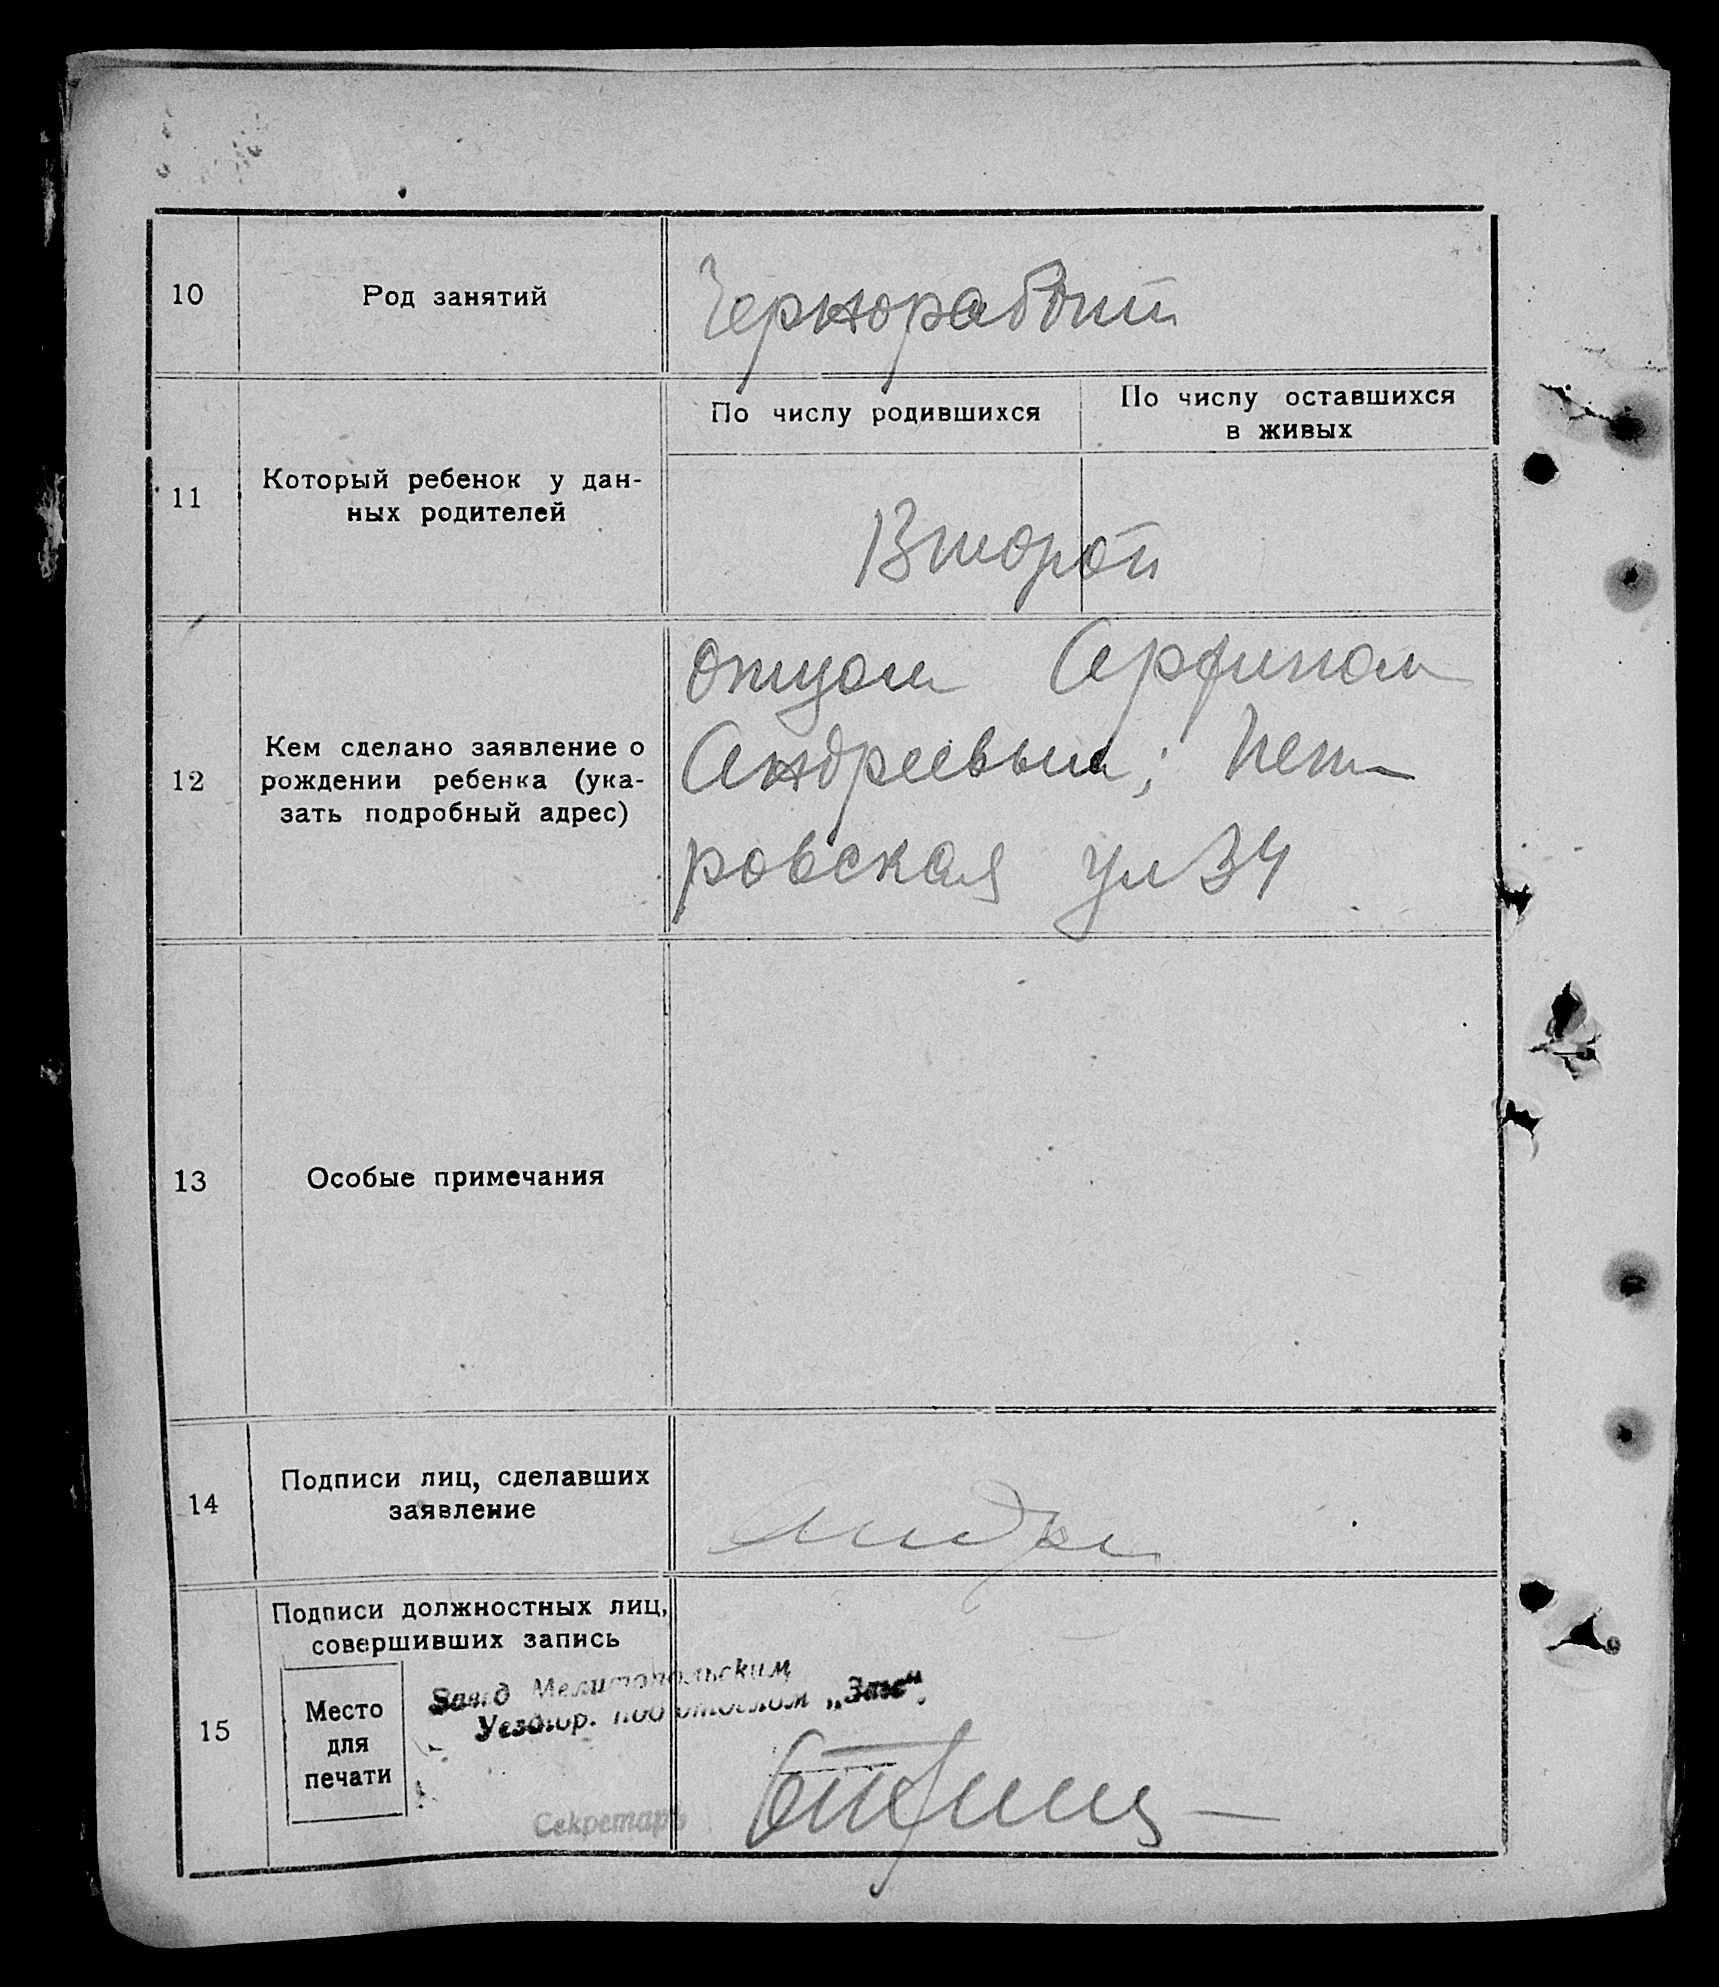 10
Род занятий
Чернорабочий
11
Который ребенок у дан-
ных родителей
По числу родившихся
По числу оставшихся
в живых
Второй
12
Кем сделано заявление о
рождении ребенка (ука-
зать подробный адрес)
отцом
Андреевым; Пет-
ровская ул 34
13
Особые примечания
14
Подписи лиц, сделавших
заявление
15
Подписи должностных лиц,
совершивших запись
Место
для
печати
Завед Мелитопольским
Уездгор. подотделом „Загс“
Секретарь